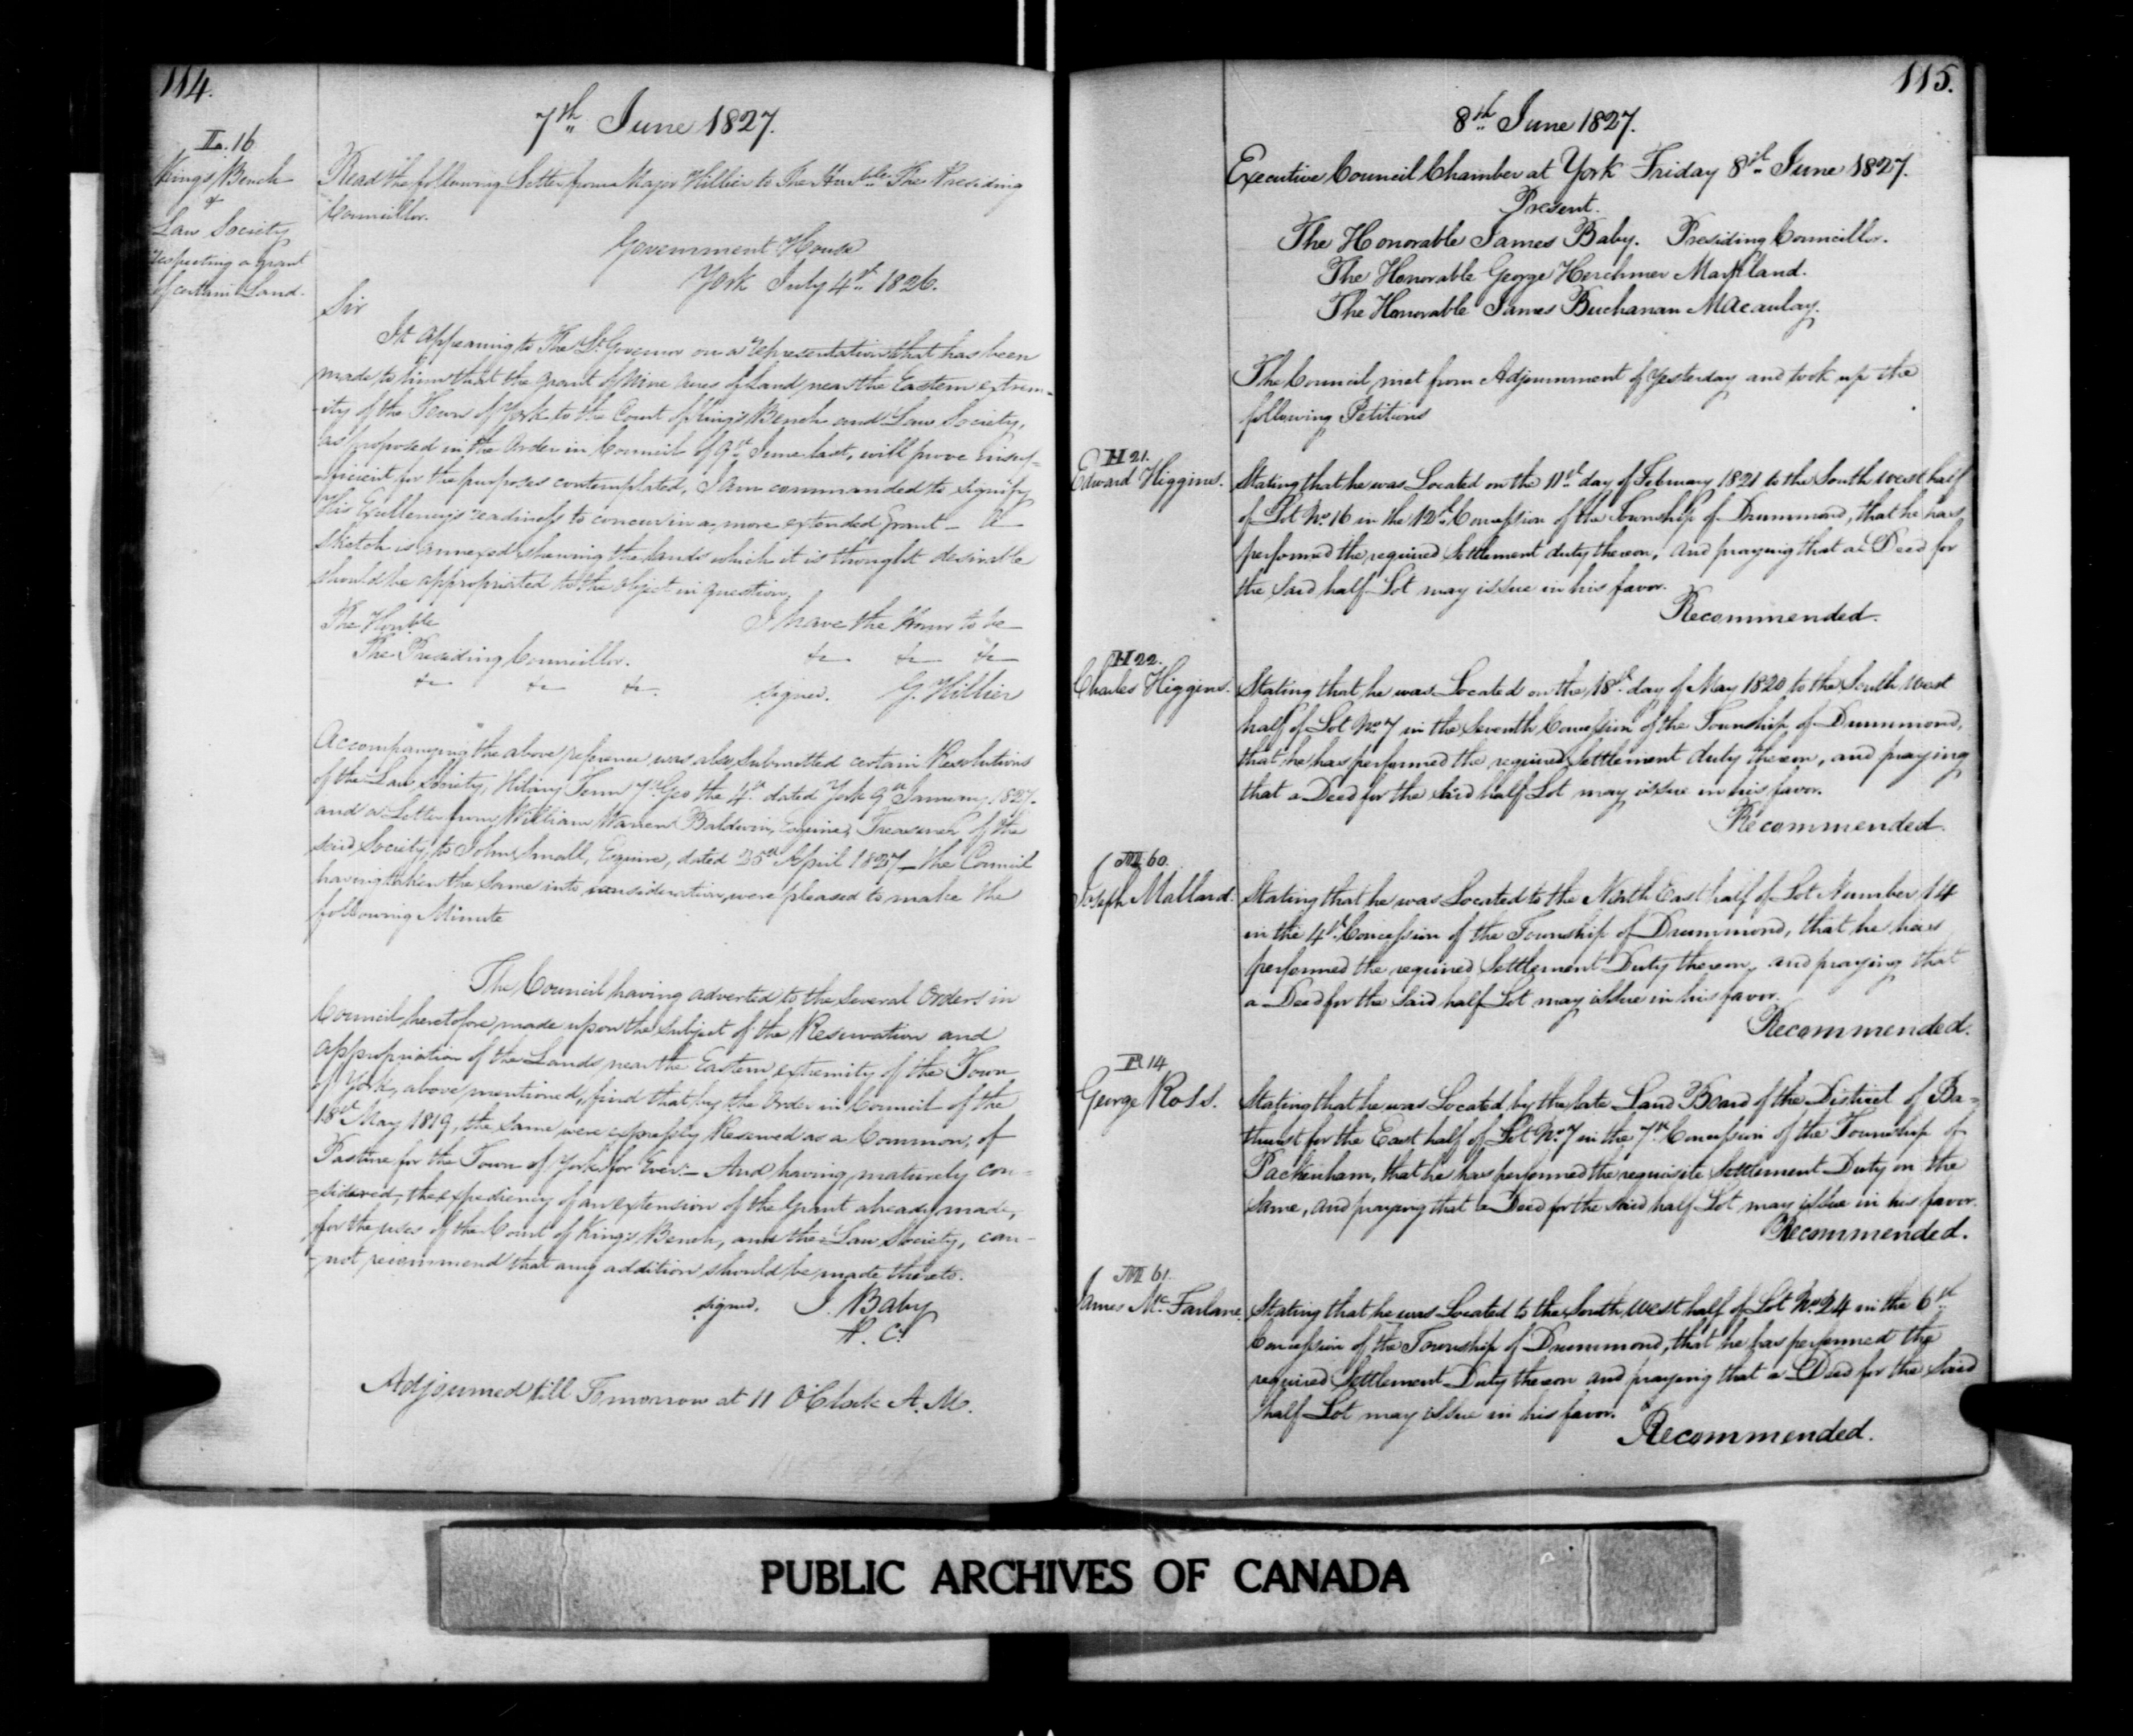 114.
7th June 1827.
L. 16
King's Bench
&
Law Society
respecting a grant
of certain Land.
Read the following Letter from Major Hillier to The Honble. The Presiding
Councillor.
Government House
York July 4th 1826.
Sir
It appearing to The Lt. Governor on a representation that has been
made to him that the grant of Nine Acres of Land near the Eastern extrem-
-ity of the Town of York to the Court of King's Bench and Law Society,
as proposed in the Order in Council of 9th June last, will prove insuf-
-ficient for the purposes contemplated, I am commanded to signify
His Excellency's readiness to concur in a more extended Grant – A
sketch is annexed shewing the lands which it is thought desirable
should be appropriated to the object in question.
I have the honor to be
The Honble
The Presiding Councillor. &c &c &c
&c &c &c. signed. G. Hillier
Accompanying the above reference was also submitted certain Resolutions
of the Law Society, Hilary Term 7th Geo the 4th dated York 9th January, 1827.
and a Letter from William Warren Baldwin, Esquire, Treasurer of the
said Society, to John Small, Esquire, dated 25th April 1827 – The Council
having taken the same into consideration, were pleased to make the
following Minute
The Council having adverted to the several Orders in
Council heretofore made upon the subject of the Reservation and
appropriation of the Lands near the Eastern extremity of the Town
of York, above mentioned, find that by the Order in Council of the
18th May 1819, the same were expressly Reserved as a Common, of
Pasture for the Town of York for Ever. – And having maturely con-
-sidered, the expediency of an extension of the Grant already made,
for the uses of the Court of King's Bench, and the Law Society, can-
-not recommend that any addition should be made thereto.
signed. J. Baby
P. C.
Adjourned till Tomorrow at 11 O'Clock A.M.
115.
8th June 1827.
Executive Council Chamber at York Friday 8th June 1827.
Present.
The Honorable James Baby. Presiding Councillor.
The Honorable George Herchmer Markland.
The Honorable James Buchanan Macaulay.
The Council met from Adjournment of Yesterday and took up the
following Petitions
H 21.
Edward Higgins. Stating that he was Located on the 11th day of February 1821 to the South west half
of Lot No. 16 in the 12th Concession of the Township of Drummond, that he has
performed the required Settlement duty thereon, and praying that a Deed for
the said half Lot may issue in his favor.
Recommended.
H 22.
Charles Higgins. Stating that he was Located on the 18th day of May 1820 to the South West
half of Lot No. 7 in the Seventh Concession of the Township of Drummond,
that he has performed the required Settlement duty thereon, and praying
that a Deed for the said half Lot may issue in his favor.
Recommended.
M 60.
Joseph Mallard. Stating that he was Located to the North East half of Lot Number 14
in the 4th Concession of the Township of Drummond, that he has
performed the required Settlement Duty thereon, and praying that
a Deed for the said half Lot may issue in his favor.
Recommended.
R 14
George Ross. Stating that he was Located by the late Land Board of the District of Ba-
thurst for the East half of Lot No. 7 in the 7th Concession of the Township of
Packenham, that he has performed the requisite Settlement Duty on the
same, and praying that a Deed for the said half Lot may issue in his favor.
Recommended.
M 61.
James Mc. Farlane. Stating that he was Located to the South West half of Lot No. 24 in the 6th
Concession of the Township of Drummond, that he has performed the
required Settlement Duty thereon and praying that a Deed for the said
half Lot may issue in his favor.
Recommended.
PUBLIC ARCHIVES OF CANADA